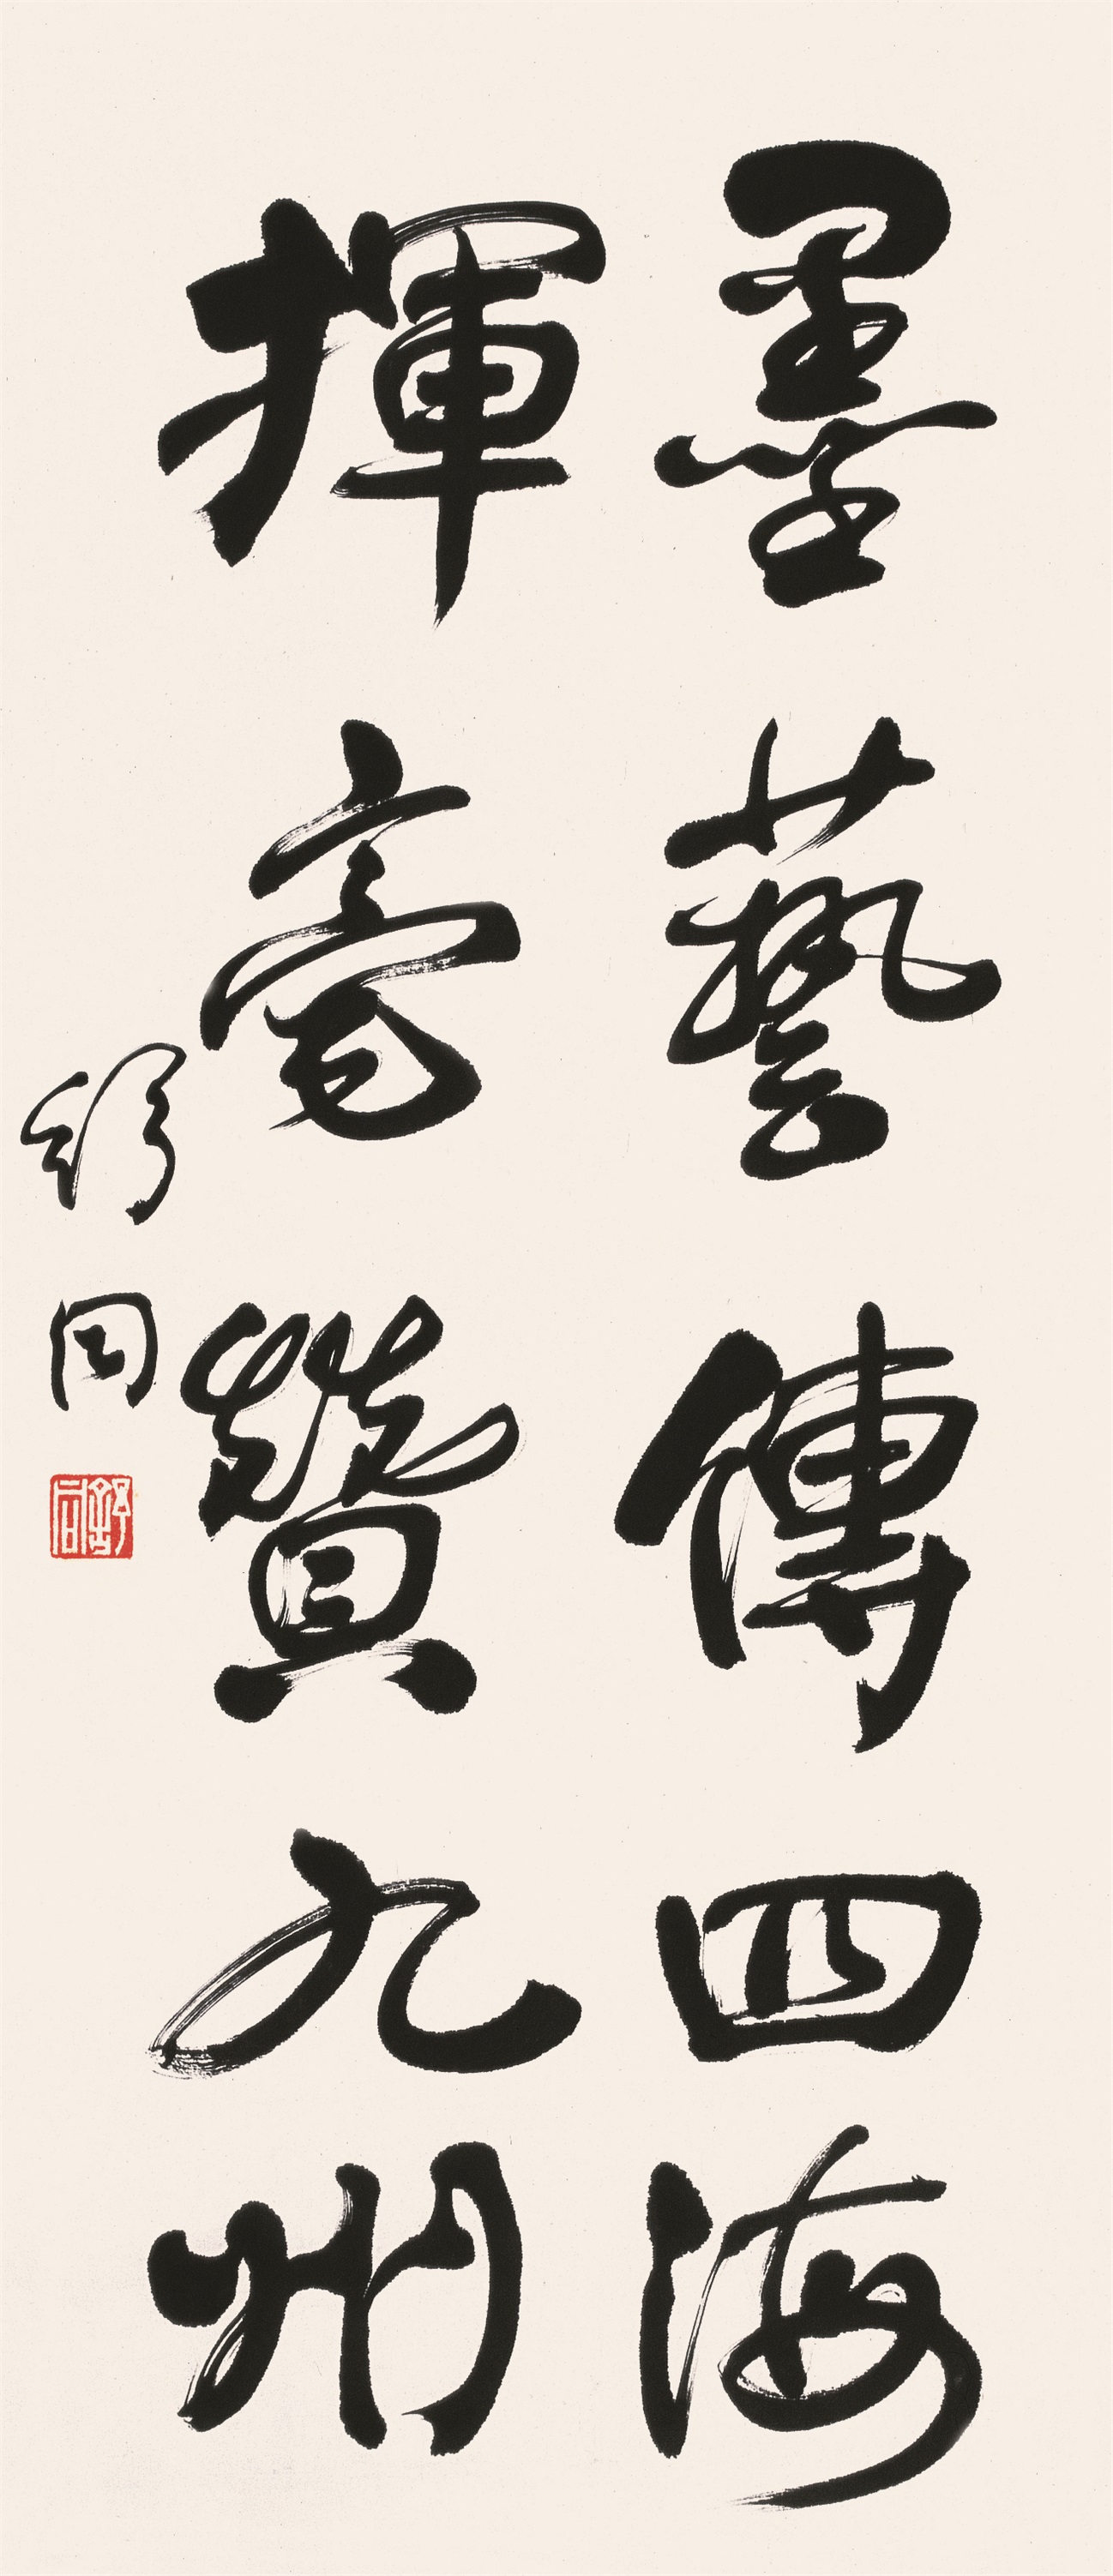 墨藝傳四海
揮毫贊九州
舒同
舒同